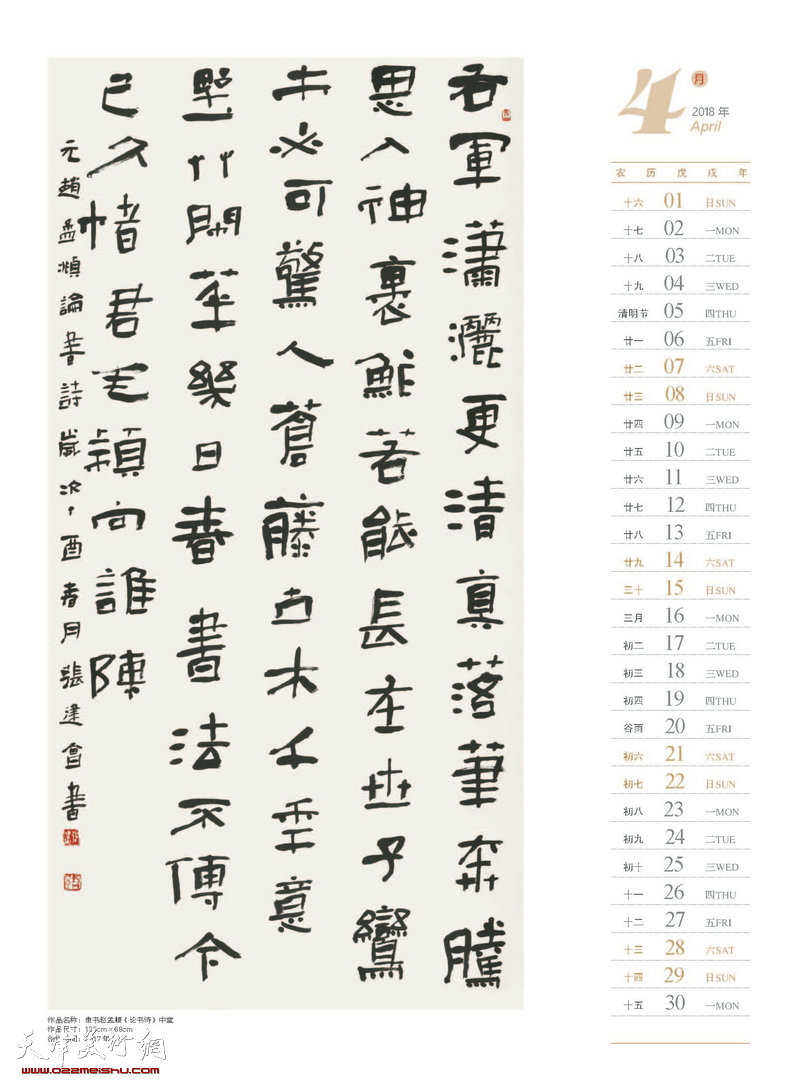 右軍瀟灑更清真落筆奔騰
思入神裹鮓若能長在世子鸞
未必可驚人蒼藤古木千年意
野艸閒華幾日春書法不傳今
已久楮君毛穎向誰陳
元趙孟頫論書詩歲次丁酉春月張建會書
4月
2018 年
April
农历戊戌年
十六 01 日SUN
十七 02 一MON
十八 03 二TUE
十九 04 三WED
清明节 05 四THU
廿一 06 五FRI
廿二 07 六SAT
廿三 08 日SUN
廿四 09 一MON
廿五 10 二TUE
廿六 11 三WED
廿七 12 四THU
廿八 13 五FRI
廿九 14 六SAT
三十 15 日SUN
三月 16 一MON
初二 17 二TUE
初三 18 三WED
初四 19 四THU
谷雨 20 五FRI
初六 21 六SAT
初七 22 日SUN
初八 23 一MON
初九 24 二TUE
初十 25 三WED
十一 26 四THU
十二 27 五FRI
十三 28 六SAT
十四 29 日SUN
十五 30 一MON
作品名称：隶书赵孟頫《论书诗》中堂
作品尺寸：137cm×68cm
天津美術網
www.022meishu.com